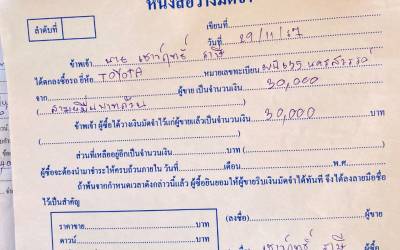 หนังสือวางมัดจำ
ลำดับที่
เขียนที่
วันที่ 29/11/67
ข้าพเจ้า นาย เชาว์ฤทธิ์
ได้ตกลงซื้อรถ ยี่ห้อ TOYOTA หมายเลขทะเบียน นครสวรรค์
จาก ผู้ขาย เป็นจำนวนเงิน 30,000
(สามหมื่นบาทถ้วน)
ข้าพเจ้า ผู้ซื้อ ได้วางเงินมัดจำไว้แก่ผู้ขายแล้วเป็นจำนวนเงิน 30,000
( )
ส่วนที่เหลืออยู่อีกเป็นจำนวนเงิน บาท
ผู้ซื้อจะต้องนำมาชำระให้ครบถ้วนภายใน วันที่ เดือน พ.ศ.
ถ้าพ้นจากกำหนดเวลาดังกล่าวนี้แล้ว ผู้ซื้อยินยอมให้ผู้ขายริบเงินมัดจำได้ทันที จึงได้ลงลายมือชื่อ
ไว้เป็นสำคัญ
ราคาขาย บาท (ลงชื่อ) ผู้ขาย
ดาวน์ บาท ( )
ผู้ซื้อ